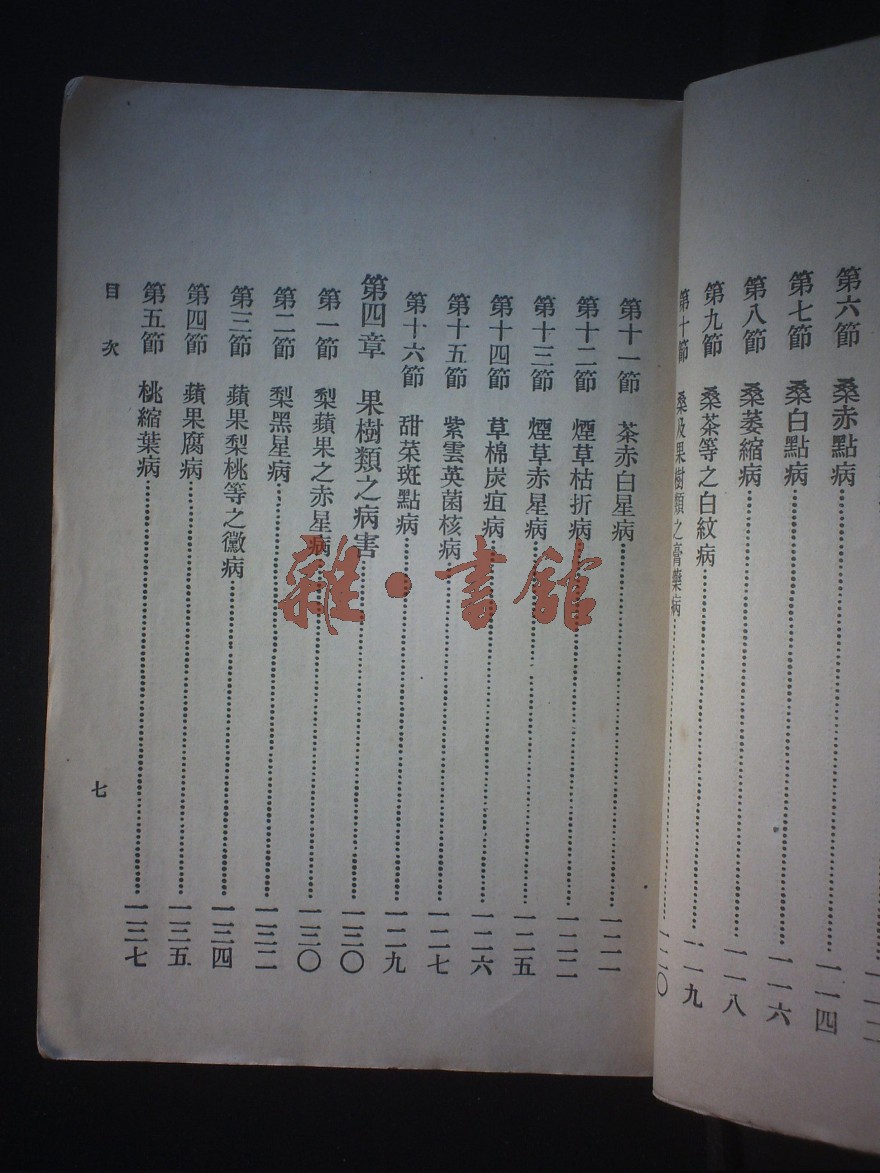 第六節 桑赤點病 一一四
第七節 桑白點病 一一六
第八節 桑萎縮病 一一八
第九節 桑茶等之白紋病 一一九
第十節 桑及果樹類之膏藥病 一二〇
第十一節 茶赤白星病 一二一
第十二節 煙草枯折病 一二二
第十三節 煙草赤星病 一二五
第十四節 草棉炭疽病 一二六
第十五節 紫雲英菌核病 一二七
第十六節 甜菜斑點病 一二九
第四章 果樹類之病害 一三〇
第一節 梨蘋果之赤星病 一三〇
第二節 梨黑星病 一三二
第三節 蘋果梨桃等之黴病 一三四
第四節 蘋果腐病 一三五
第五節 桃縮葉病 一三七
目次
七
雜·書館